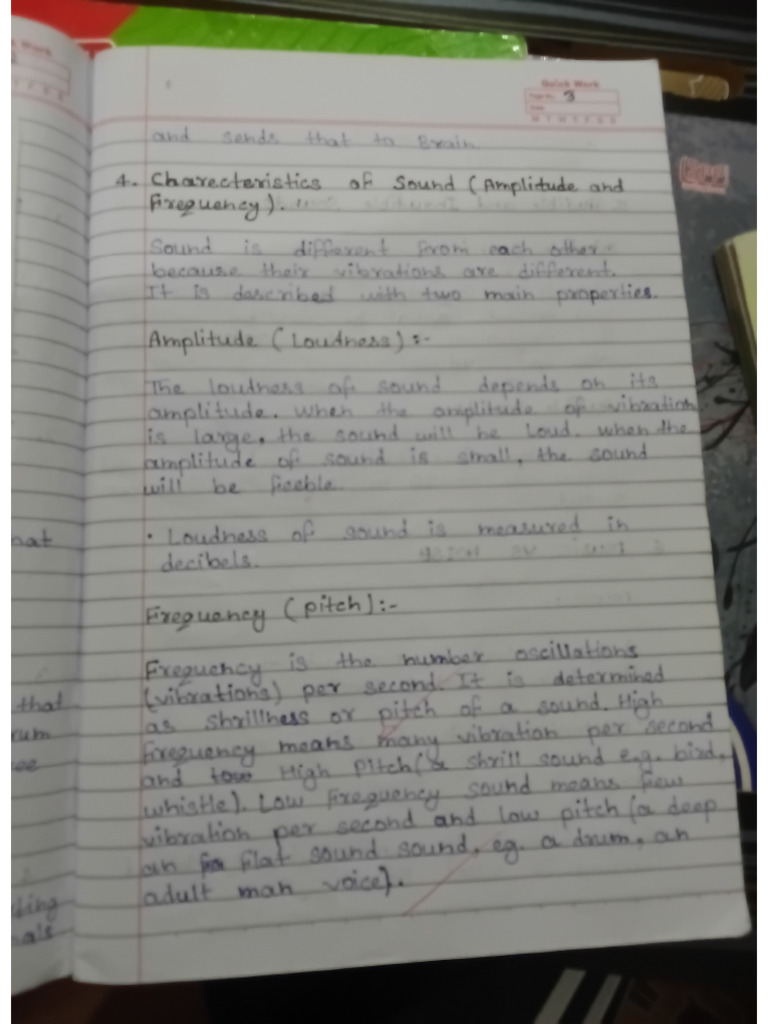 Quick Work
Page No. 3
Date
M T W T F S S
and sends that to Brain
4. Charecteristics of Sound (Amplitude and
Frequency).
Sound is different from each other
because their vibrations are different.
It is described with two main properties.
Amplitude (Loudness):-
The loudness of sound depends on its
amplitude. When the amplitude of vibration
is large, the sound will be loud. when the
amplitude of sound is small, the sound
will be feeble.
• Loudness of sound is measured in
decibels.
Frequency (pitch):-
Frequency is the number oscillations
(vibrations) per second. It is determined
as shrillness or pitch of a sound. High
frequency means many vibration per second
and High Pitch (a shrill sound e.g. bird,
whistle). Low Frequency sound means few
vibration per second and low pitch (a deep
an flat sound sound, eg. a drum, an
adult man voice).
hat
that
rum
ee
ting
als